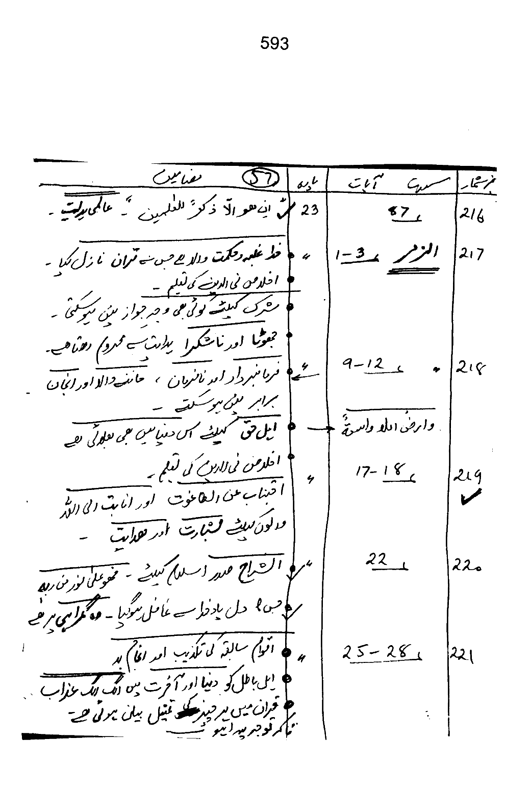 593
نمبرشمار سورتہا آیات پارہ 57 مضامین
216 87 23 ان ھو الّا ذکرٌ للعٰلمین۔ عالمی ہدایت۔
217 الزمر 1-3 〃 خدا غلبہ و حکمت والا ہے جس نے قرآن نازل کیا۔
اخلاص فی الدین کی تعلیم۔
شرک کیلئے کوئی بھی وجہ جواز نہیں ہو سکتی۔
جھوٹا اور ناشکرا ہدایت سے محروم رہتا ہے۔
218 〃 9-12 〃 فرمانبردار اور نافرمان، جاننے والا اور انجان
برابر نہیں ہو سکتے۔
وارض اللہ واسعۃٌ اہل حق کیلئے اس دنیا میں بھی بھلائی ہے
اخلاص فی الدین کی تعلیم۔
219 17-18 〃 اجتناب عن الطاغوت اور انابت الی اللہ
والوں کیلئے بشارت اور ھدایت۔
220 22 〃 انشراح صدر اسلام کیلئے۔ فھو علیٰ نور من ربہ
جس کا دل یاد خدا سے غافل ہو گیا۔ وہ گمراہی پر ہے
221 25-28 〃 اقوام سابقہ کی تکذیب اور انجام بد
اہل باطل کو دنیا اور آخرت میں الگ الگ عذاب
قرآن میں ہر چیز کی تمثیل بیان ہوئی ہے۔
تاکہ توجہ پیدا ہو